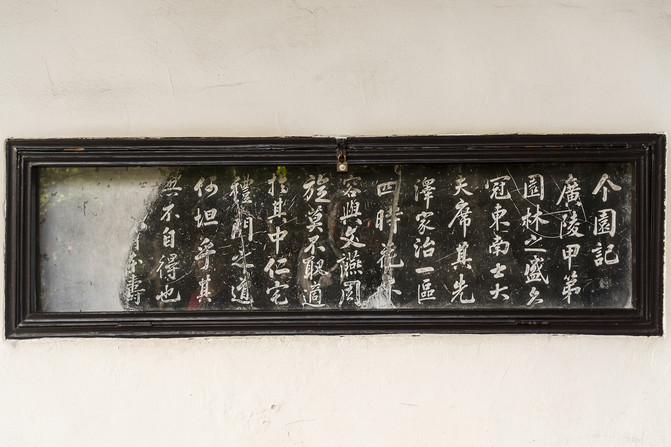 个園記
廣陵甲第
園林之盛名
冠東南士大
夫席其先
澤家治一區
四時花木
容與文讌周
旋莫不取適
於其中仁宅
禮門之道
何坦乎其
無不自得也
壽